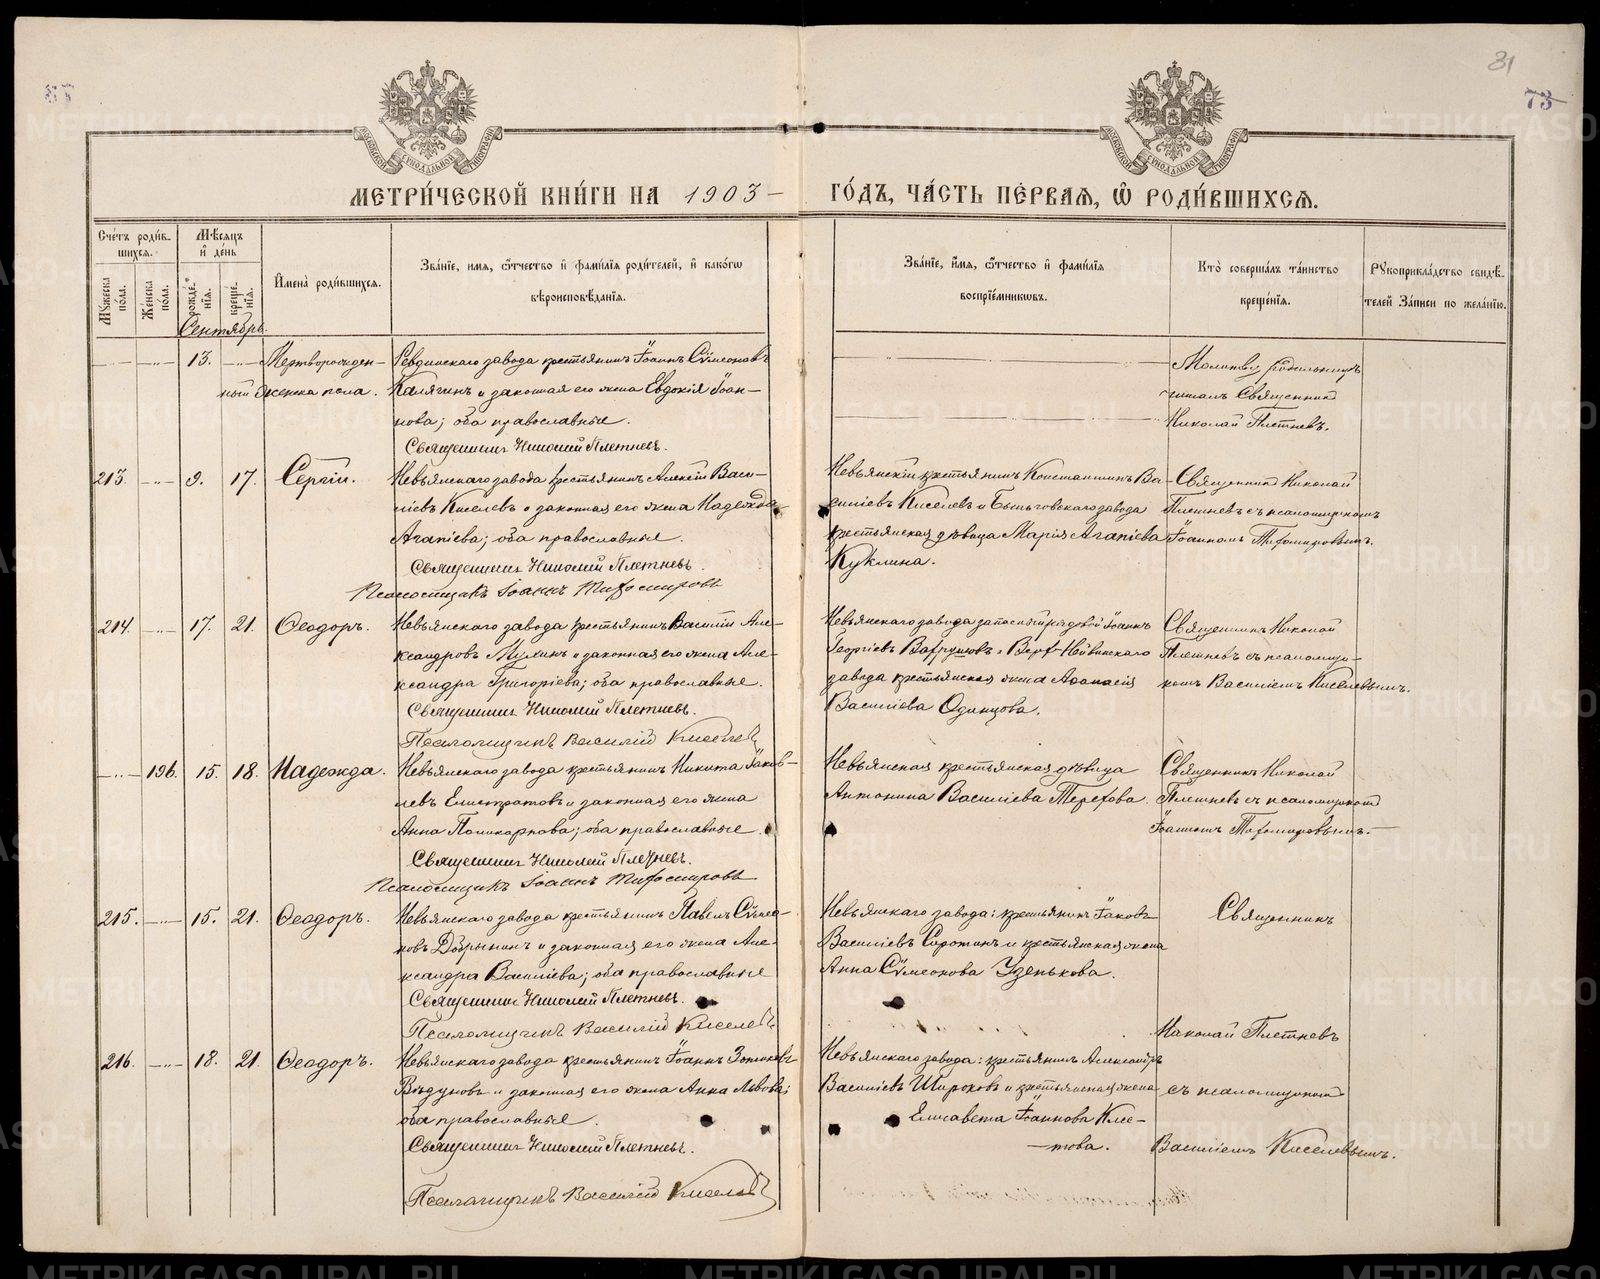 31
73
МЕТРИ́ЧЕСКОЙ КНИ́ГИ НА 1903 ГО́ДЪ, ЧА́СТЬ ПЕ́РВАЯ, Ѡ҆ РОДИ́ВШИХСЯ.
Сче́тъ роди́в-
шихся.
Му́жеска по́ла.
Же́нска по́ла.
Мѣ́сяцъ
и҆ де́нь
рожде́-
нїя.
креще́-
нїя.
И҆мена̀ роди́вшихся.
Зва́нїе, имя, ѻ҆́тчество и҆ фами́лїя роди́телей, и҆ како́гѡ
вѣроисповѣ́данїя.
Зва́нїе, и҆́мя, ѻ҆́тчество и҆ фами́лїя
воспрїе́мникѡвъ.
Кто̀ соверша́лъ та́инство
креще́нїя.
Рꙋкоприкла́дство свидѣ́-
телей За́писи по жела́нїю.
Сентябрь.
13.
Мертворожден-
ный женска пола.
Ревдинскаго завода крестьянинъ Іоаннъ Сѵмеоновъ
Калягинъ и законная его жена Евдокія Іоан-
нова; оба православные.
Священникъ Николай Плетневъ.
Молитву родильницѣ
читалъ Священникъ
Николай Плетневъ.
213.
9.
17.
Сергій.
Невьянскаго завода крестьянинъ Алексій Васи-
ліевъ Киселевъ и законная его жена Надежда
Агапіева; оба православные.
Священникъ Николай Плетневъ.
Псаломщикъ Іоаннъ Тихомировъ
Невьянскій крестьянинъ Константинъ Ва-
силіевъ Киселевъ и Быньговскаго завода
крестьянская дѣвица Марія Агапіева
Куклина.
Священникъ Николай
Плетневъ съ псаломщикомъ
Іоанномъ Тихомировымъ.
214.
17.
21.
Ѳеодоръ.
Невьянскаго завода крестьянинъ Василій Але-
ксандровъ Мухинъ и законная его жена Але-
ксандра Григоріева; оба православные.
Священникъ Николай Плетневъ.
Псаломщикъ Василій Киселевъ
Невьянскаго завода запасный рядовой Іоаннъ
Георгіевъ Вахрушовъ и Верх-Нейвинскаго
завода крестьянская жена Аѳанасія
Василіева Одинцова.
Священникъ Николай
Плетневъ съ псаломщи-
комъ Василіемъ Киселевымъ.
196.
15.
18.
Надежда.
Невьянскаго завода крестьянинъ Никита Іаков-
левъ Елистратовъ и законная его жена
Анна Поликарпова; оба православные.
Священникъ Николай Плетневъ.
Псаломщикъ Іоаннъ Тихомировъ
Невьянская крестьянская дѣвица
Антонина Василіева Терехова.
Священникъ Николай
Плетневъ съ псаломщикомъ
Іоанномъ Тихомировымъ.
215.
15.
21.
Ѳеодоръ.
Невьянскаго завода крестьянинъ Павелъ Сѵмео-
новъ Добрынинъ и законная его жена Але-
ксандра Василіева; оба православные
Священникъ Николай Плетневъ.
Псаломщикъ Василій Киселевъ
Невьянскаго завода: крестьянинъ Іаковъ
Василіевъ Сиротинъ и крестьянская жена
Анна Сѵмеонова Узенькова.
Священникъ
Николай Плетневъ
216.
18.
21.
Ѳеодоръ.
Невьянскаго завода крестьянинъ Іоаннъ Зотиковъ
Вѣдуновъ и законная его жена Анна Львова;
оба православные.
Священникъ Николай Плетневъ.
Псаломщикъ Василій Киселевъ
Невьянскаго завода: крестьянинъ Александръ
Василіевъ Широковъ и крестьянская жена
Елисавета Іоаннова Кле-
това.
съ псаломщикомъ
Василіемъ Киселевымъ.
METRIKI.GASO-URAL.RU